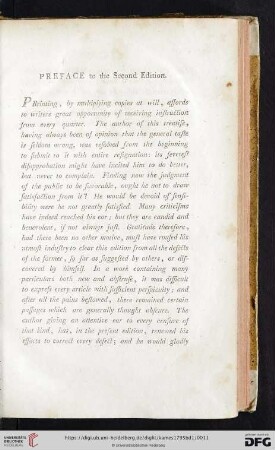 PREFACE to the Second Edition.
PRinting, by multiplying copies at will, affords
to writers great opportunity of receiving instruction
from every quarter. The author of this treatise,
having always been of opinion that the general taste
is seldom wrong, was resolved from the beginning
to submit to it with entire resignation: its severest
disapprobation might have incited him to do better,
but never to complain. Finding now the judgment
of the public to be favourable, ought he not to draw
satisfaction from it? He would be devoid of sensi-
bility were he not greatly satisfied. Many criticisms
have indeed reached his ear; but they are candid and
benevolent, if not always just. Gratitude therefore,
had there been no other motive, must have roused his
utmost industry, to clear this edition from all the defects
of the former, so far as suggested by others, or dis-
covered by himself. In a work containing many
particulars both new and abstruse, it was difficult
to express every article with sufficient perspicuity; and
after all the pains bestowed, there remained certain
passages which are generally thought obscure. The
author giving an attentive ear to every censure of
that kind, has, in the present edition, renewed his
efforts to correct every defect; and he would gladly
UNIVERSITÄTS-
BIBLIOTHEK
HEIDELBERG
https://digi.ub.uni-heidelberg.de/diglit/kames1795bd1/0011
© Universitätsbibliothek Heidelberg
gefördert durch die
DFG